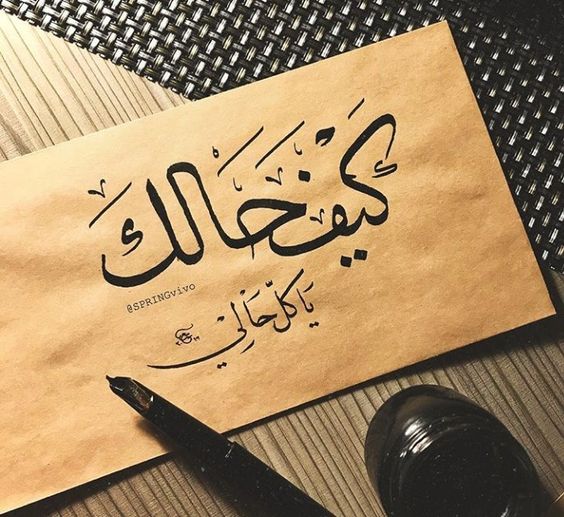 كَيْفَ حَالك
@SPRINGvivo
يَا كلّ حَالِي